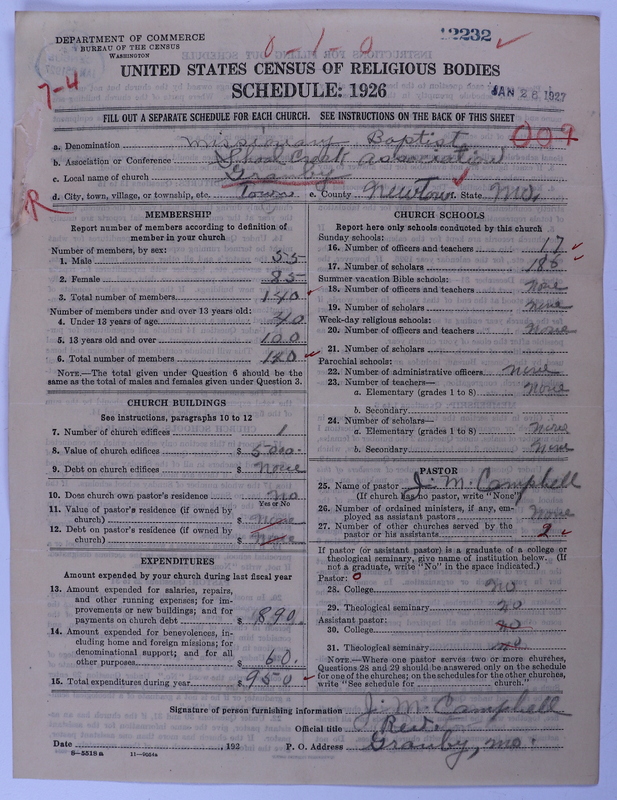 DEPARTMENT OF COMMERCE
BUREAU OF THE CENSUS
WASHINGTON
0-1-0
12232
7-4
UNITED STATES CENSUS OF RELIGIOUS BODIES
SCHEDULE: 1926
JAN 26 1927
FILL OUT A SEPARATE SCHEDULE FOR EACH CHURCH. SEE INSTRUCTIONS ON THE BACK OF THIS SHEET
009
a. Denomination Missionary Baptist
b. Association or Conference Shoal Creek Association
c. Local name of church Granby
d. City, town, village, or township, etc. Town e. County Newton State Mo.
R
MEMBERSHIP
Report number of members according to definition of
member in your church
Number of members, by sex:
1. Male 55
2. Female 85
3. Total number of members 140
Number of members under and over 13 years old:
4. Under 13 years of age 40
5. 13 years old and over 100
6. Total number of members 140
NOTE.—The total given under Question 6 should be
same as the total of males and females given under Question 3.
CHURCH BUILDINGS
See instructions, paragraphs 10 to 12
7. Number of church edifices 1
8. Value of church edifices $ 5000.
9. Debt on church edifices $ None
10. Does church own pastor's residence No
Yes or No
11. Value of pastor's residence (if owned by
church) $ None
12. Debt on pastor's residence (if owned by
church) $ None
EXPENDITURES
Amount expended by your church during last fiscal year
13. Amount expended for salaries, repairs,
and other running expenses; for im-
provements or new buildings; and for
payments on church debt $ 890.
14. Amount expended for benevolences, in-
cluding home and foreign missions; for
denominational support; and for all
other purposes $ 60.
15. Total expenditures during year $ 950
CHURCH SCHOOLS
Report here only schools conducted by this church
Sunday schools:
16. Number of officers and teachers 17
17. Number of scholars 185
Summer vacation Bible schools:
18. Number of officers and teachers None
19. Number of scholars None
Week-day religious schools:
20. Number of officers and teachers None
21. Number of scholars
Parochial schools:
22. Number of administrative officers None
23. Number of teachers—
a. Elementary (grades 1 to 8) None
b. Secondary
24. Number of scholars—
a. Elementary (grades 1 to 8) None
b. Secondary None
PASTOR
25. Name of pastor J. M. Campbell
(If church has no pastor, write "None")
26. Number of ordained ministers, if any, em-
ployed as assistant pastors None
27. Number of other churches served by the
pastor or his assistants 2
If pastor (or assistant pastor) is a graduate of a college or
theological seminary, give name of institution below. (If
not a graduate, write "No" in the space indicated.)
Pastor: 0
28. College No
29. Theological seminary No
Assistant pastor:
30. College No
31. Theological seminary No
NOTE.—Where one pastor serves two or more churches,
Questions 28 and 29 should be answered only on the schedule
for one of the churches; on the schedules for the other churches,
write "See schedule for church."
Signature of person furnishing information J. M. Campbell
Official title
Date , 192 P. O. Address Granby, Mo.
8-5518a 11-9054a